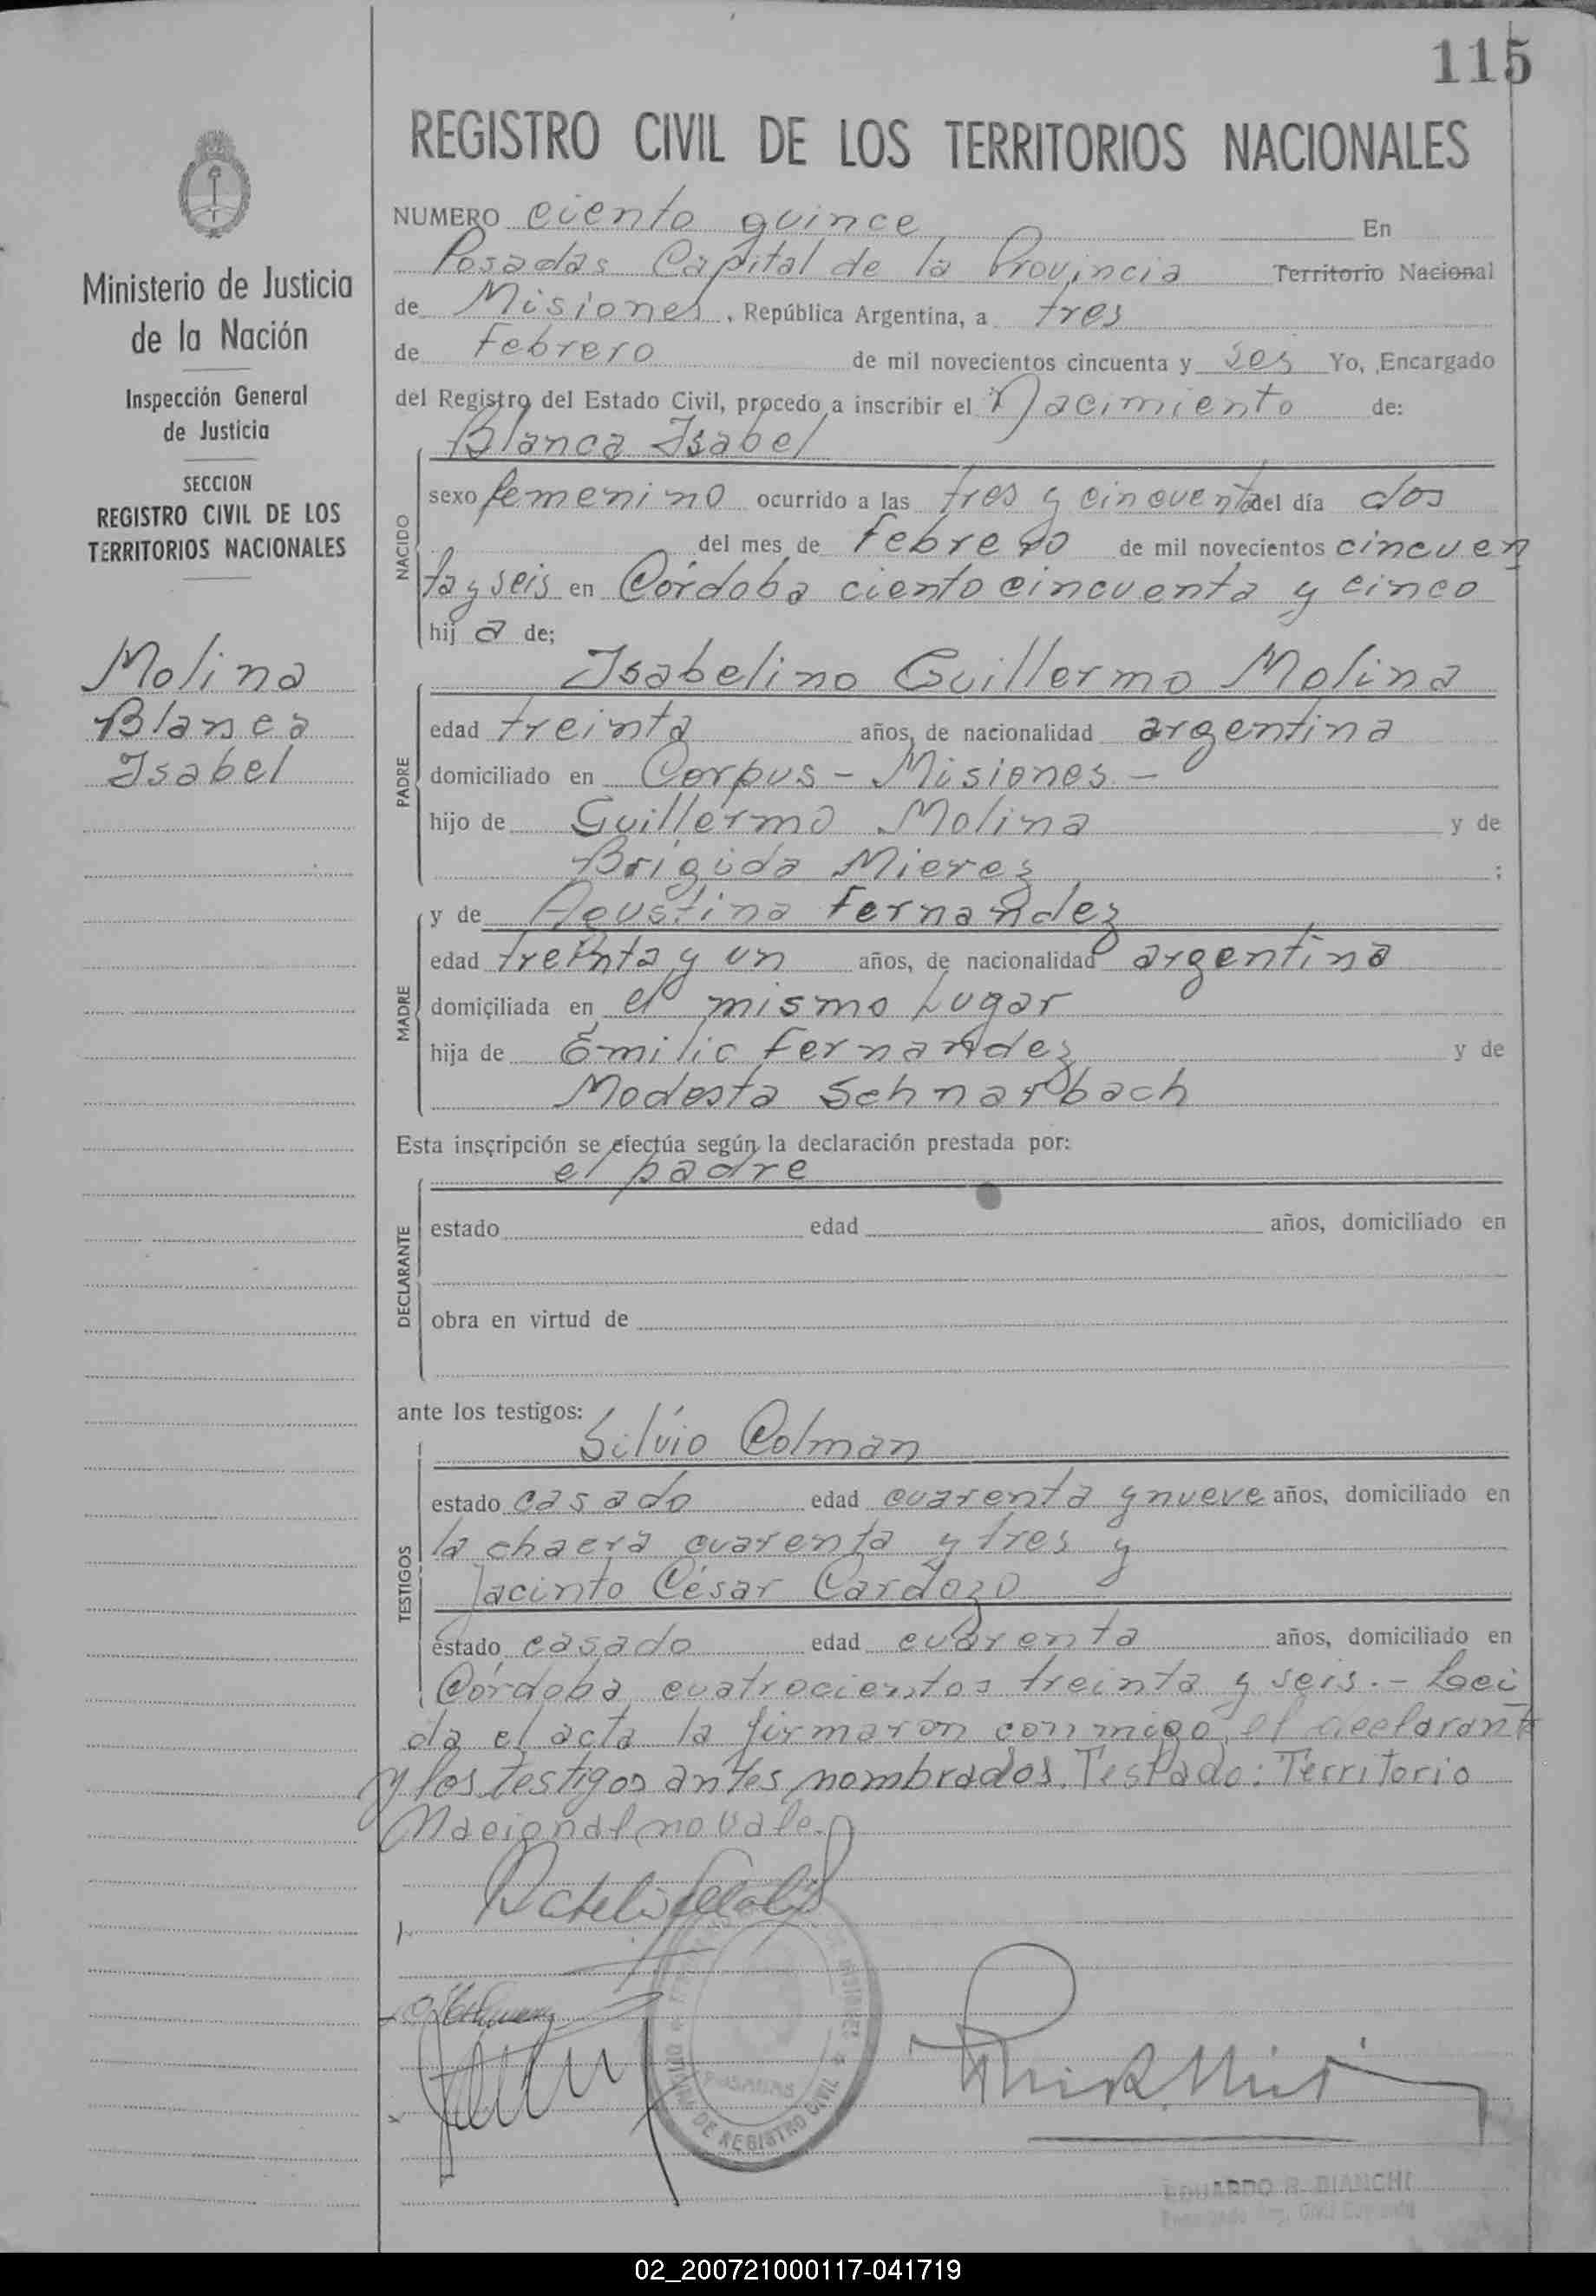 115
REGISTRO CIVIL DE LOS TERRITORIOS NACIONALES
Ministerio de Justicia
de la Nación
Inspección General
de Justicia
SECCION
REGISTRO CIVIL DE LOS
TERRITORIOS NACIONALES
Molina
Blanca
Isabel
NUMERO ciento quince En
Posadas Capital de la Provincia Territorio Nacional
de Misiones, República Argentina, a tres
de Febrero de mil novecientos cincuenta y seis Yo, Encargado
del Registro del Estado Civil, procedo a inscribir el Nacimiento de:
Blanca Isabel
NACIDO
sexo femenino ocurrido a las tres y cincuenta del día dos
del mes de Febrero de mil novecientos cincuen
ta y seis en Córdoba ciento cincuenta y cinco
hij a de;
Isabelino Guillermo Molina
PADRE
edad treinta años, de nacionalidad argentina
domiciliado en Corpus - Misiones -
hijo de Guillermo Molina y de
Brigida Mierez ;
y de Agustina Fernandez
MADRE
edad treinta y un años, de nacionalidad argentina
domiciliada en el mismo Lugar
hija de Emilio Fernandez y de
Modesta Schnarbach
Esta inscripción se efectúa según la declaración prestada por:
el padre
DECLARANTE
estado edad años, domiciliado en
obra en virtud de
ante los testigos:
Silvio Colman
TESTIGOS
estado casado edad cuarenta y nueve años, domiciliado en
la chacra cuarenta y tres y
Jacinto César Cardozo
estado casado edad cuarenta años, domiciliado en
Córdoba cuatrocientos treinta y seis.- Leí
da el acta la firmaron conmigo el declarante
y los testigos antes nombrados. Testado: Territorio
Nacional no vale.
POSADAS
OFICINA DE REGISTRO CIVIL
EDUARDO R. BIANCHI
02_200721000117-041719